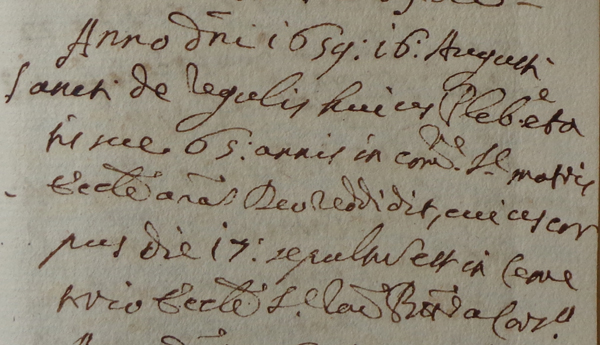 Anno dni 1659: 16: Augusti
Sancti de Regulis huius Pleb. eta
tis sue 65: annis in com. S. matris
Eccle aiam Deo reddidit, cuius cor
pus die 17: sepultu est in Ceme
terio Eccle S.